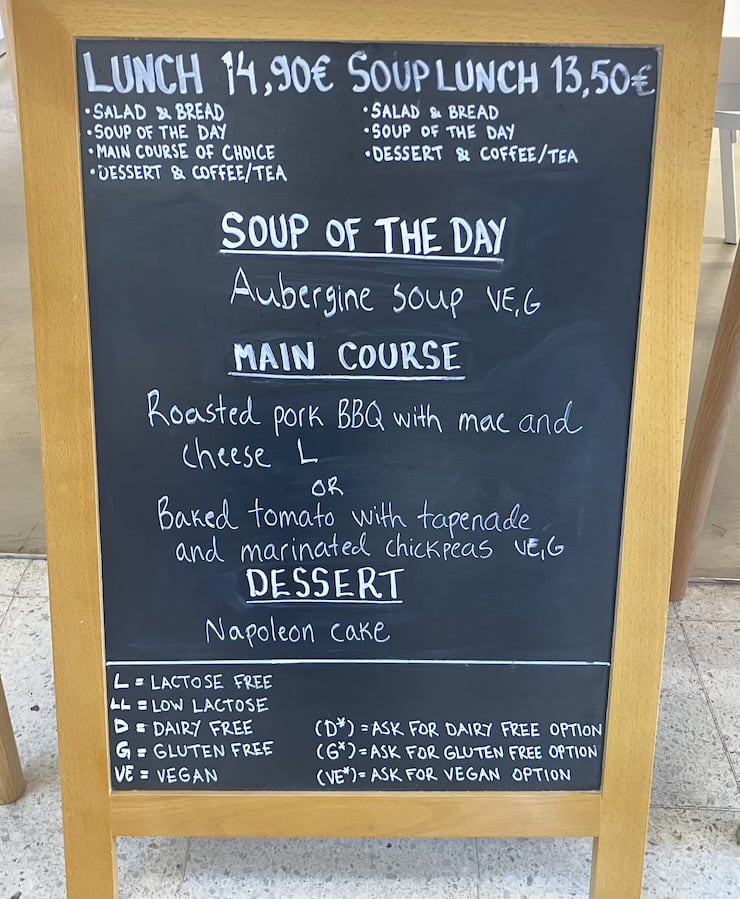 LUNCH 14,90€ SOUP LUNCH 13,50€
• SALAD & BREAD
• SOUP OF THE DAY
• MAIN COURSE OF CHOICE
• DESSERT & COFFEE/TEA
• SALAD & BREAD
• SOUP OF THE DAY
• DESSERT & COFFEE/TEA
SOUP OF THE DAY
Aubergine soup VE,G
MAIN COURSE
Roasted pork BBQ with mac and
cheese L
OR
Baked tomato with tapenade
and marinated chickpeas VE,G
DESSERT
Napoleon cake
L = LACTOSE FREE
LL = LOW LACTOSE
D = DAIRY FREE
G = GLUTEN FREE
VE = VEGAN
(D*) = ASK FOR DAIRY FREE OPTION
(G*) = ASK FOR GLUTEN FREE OPTION
(VE*) = ASK FOR VEGAN OPTION